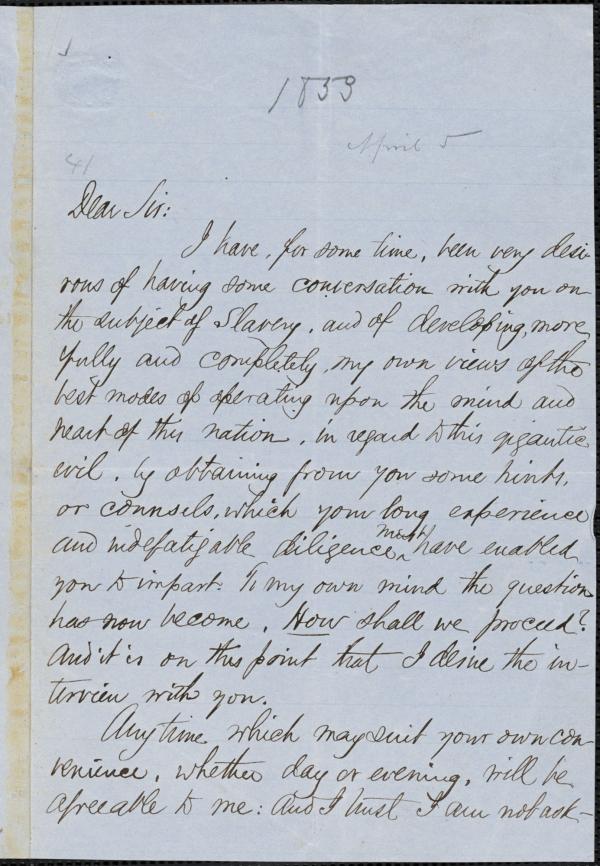 1853
April 5
41
Dear Sir:
I have, for some time, been very desi-
rous of having some conversation with you on
the subject of Slavery, and of developing, more
fully and completely, my own views of the
best modes of operating upon the mind and
heart of this nation, in regard to this gigantic
evil, by obtaining from you some hints,
or counsels, which your long experience
and indefatigable diligence must have enabled
you to impart. To my own mind the question
has now become, How shall we proceed?
And it is on this point that I desire the in-
terview with you.
Any time which may suit your own con-
venience, whether day or evening, will be
agreeable to me: And I trust I am not ask-